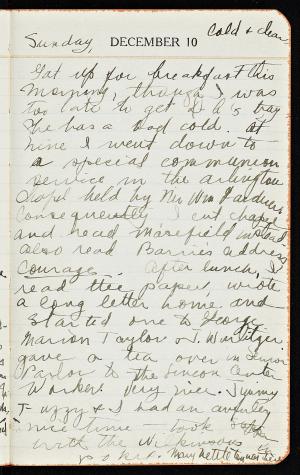 Sunday DECEMBER 10 Cold & clear
Got up for breakfast this
morning, though I was
too late to get D.A.'s tray
She has a bad cold. At
nine I went down to
a special communion
service in the Arlington
Chapel held by Mr.
Consequently I cut chapel
and read Masefield instead
also read Barrie's address
Courage. After lunch, I
read the papers, wrote
a long letter home and
started one to George.
Marion Taylor & J. Wurlitzer
gave a tea over in Senior
Parlor to the Lincoln Center
Workers. Very nice. Jimmy
Fuzzy & I had an awfully
nice time - took
with the Wilkinsons